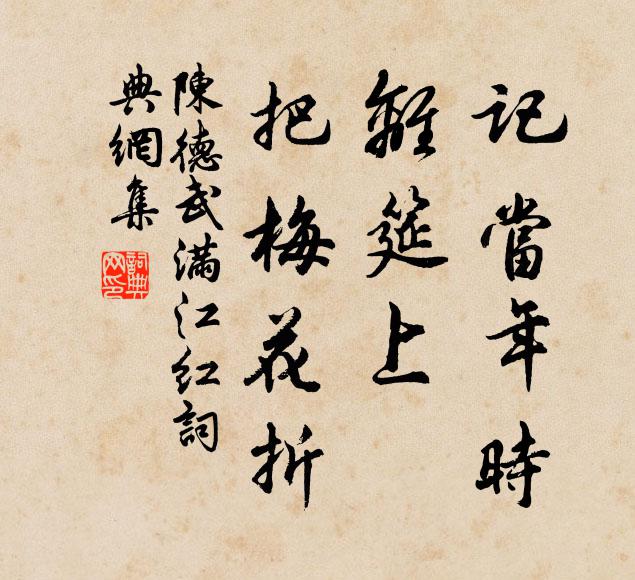 記當年時
離筵上
把梅花折
陳德武滿江紅詞
典網集
詞典
网印